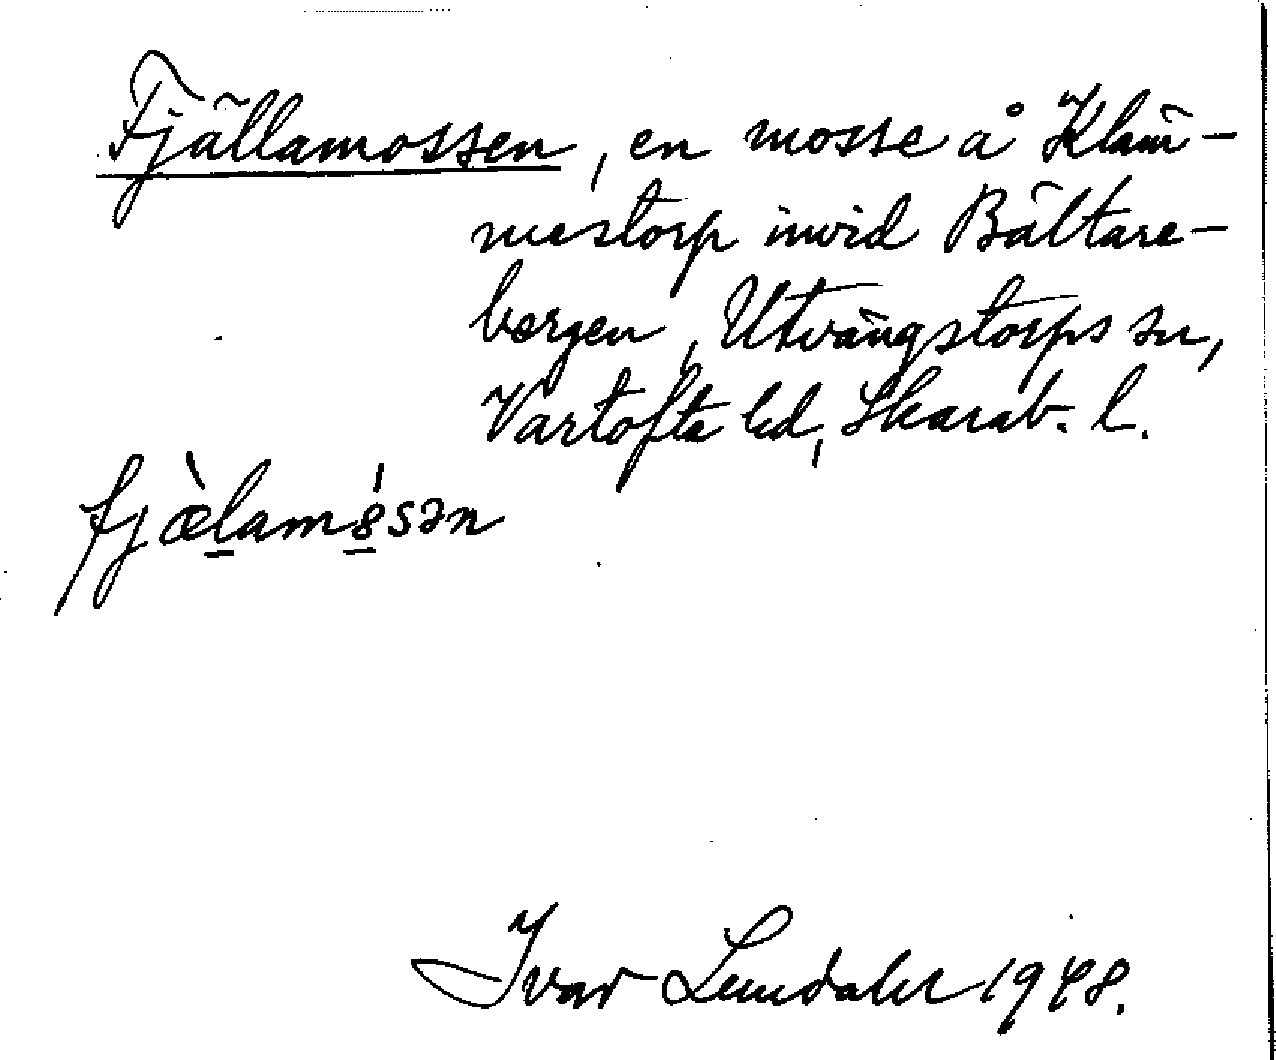 Fjällamossen, en mosse å Kläm-
mestorp invid Bältare-
bergen, Utvängstorps sn,
Vartofta hd, Skarab. l.
fjæ̀lamó̱sən
Ivar Lundahl 1948.